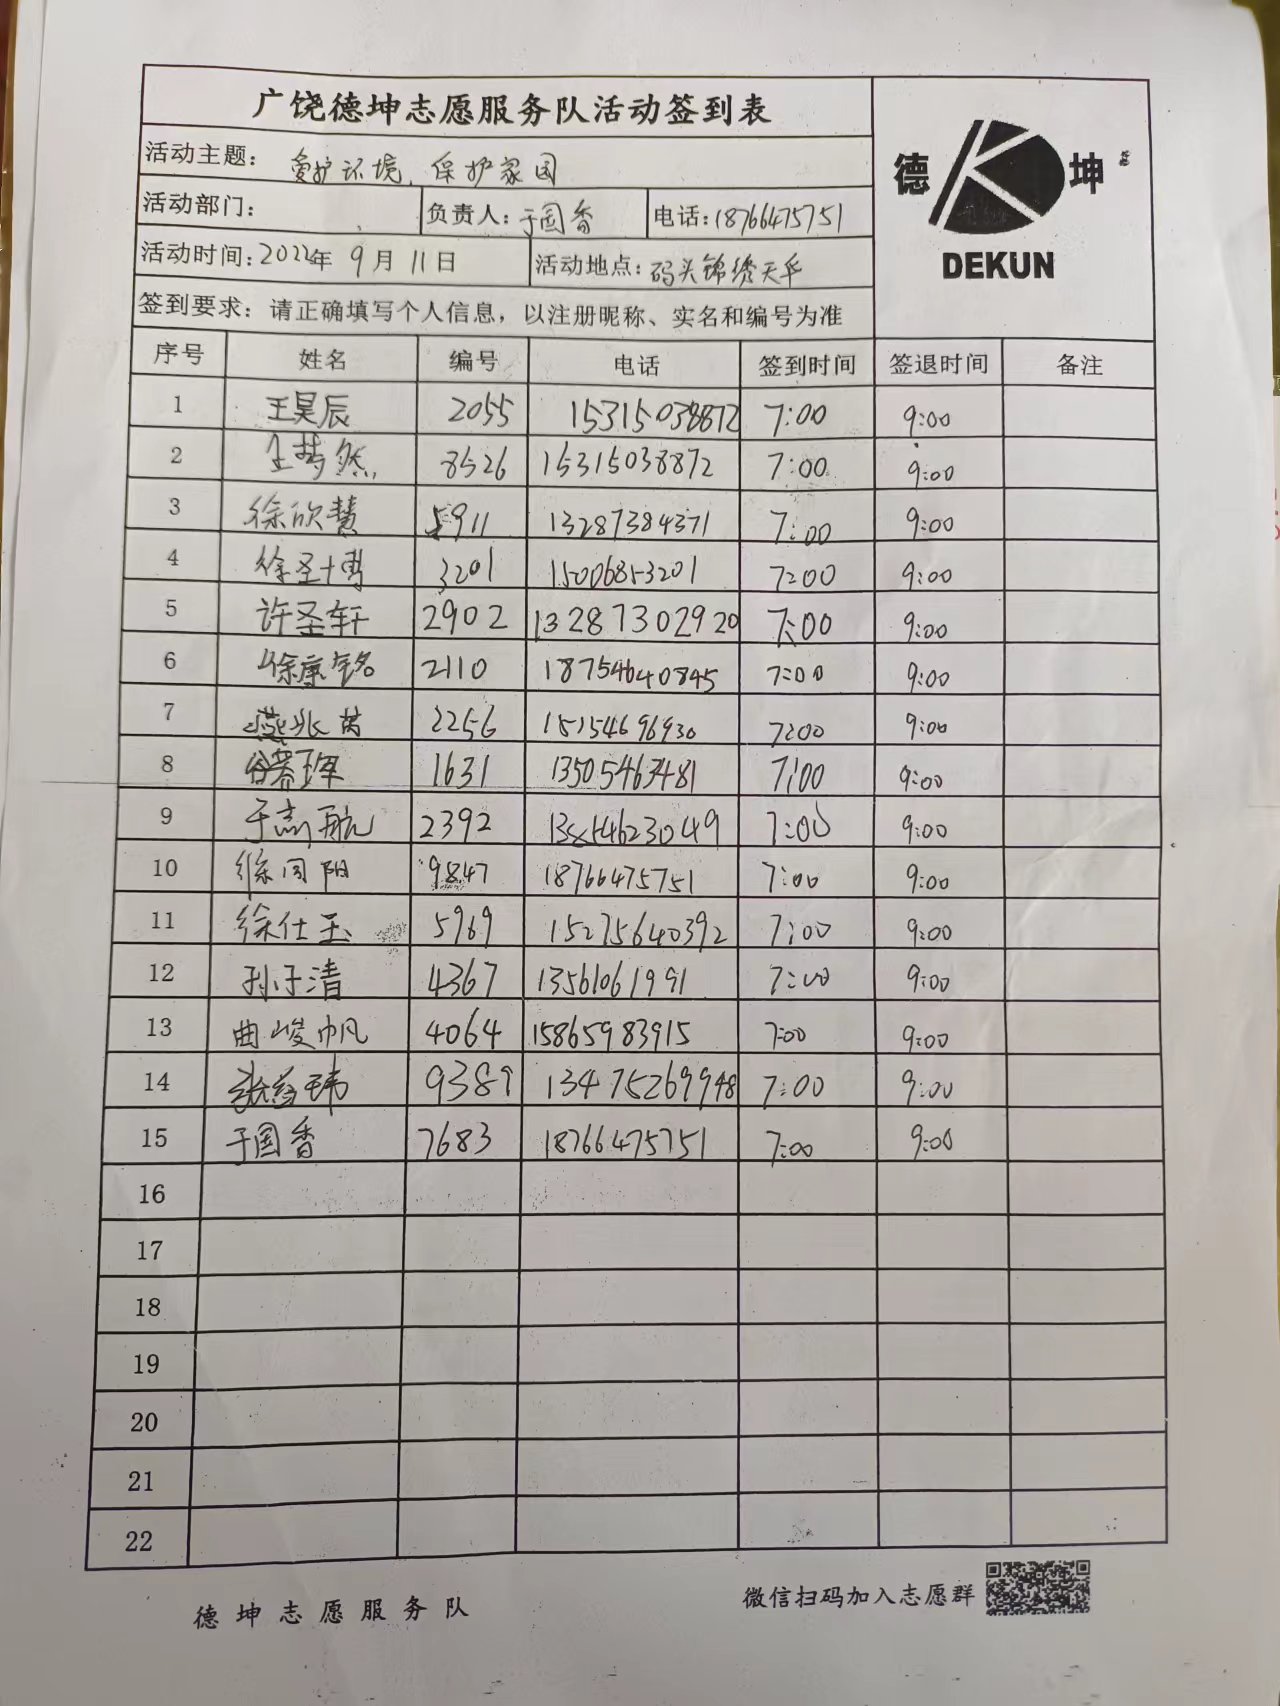 广饶德坤志愿服务队活动签到表
德 坤
DEKUN
活动主题： 爱护环境，保护家园
活动部门： 负责人：于国香 电话：18766475751
活动时间：2022年9月11日 活动地点：码头锦绣天华
签到要求：请正确填写个人信息，以注册昵称、实名和编号为准
序号 姓名 编号 电话 签到时间 签退时间 备注
1 王昊辰 2055 15315038872 7:00 9:00
2 王梦然 8526 15315038872 7:00 9:00
3 徐欣慧 5911 13287384371 7:00 9:00
4 徐圣博 3201 15006853201 7:00 9:00
5 许圣轩 2902 13287302920 7:00 9:00
6 徐康铭 2110 18754640845 7:00 9:00
7 燕兆英 2256 15154696930 7:00 9:00
8 1631 13505463481 7:00 9:00
9 于志航 2392 13854623049 7:00 9:00
10 徐同阳 9847 18766475751 7:00 9:00
11 徐仕玉 5969 15275640392 7:00 9:00
12 孙子清 4367 13561061991 7:00 9:00
13 曲峻帆 4064 15865983915 7:00 9:00
14 9389 13475269948 7:00 9:00
15 于国香 7683 18766475751 7:00 9:00
16
17
18
19
20
21
22
德坤志愿服务队 微信扫码加入志愿群